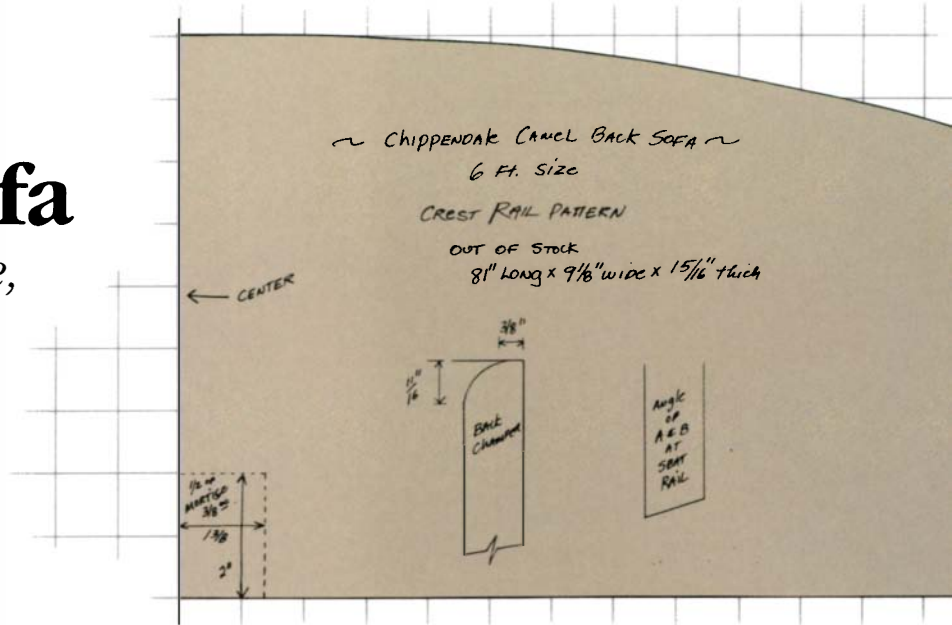 fa
e,
~ Chippendale Camel Back Sofa ~
6 Ft. Size
Crest Rail Pattern
Out of Stock
81" Long x 9⅛" wide x 15/16" thick
← Center
3/8"
11"
16
Back
Chamfer
Angle
of
A & B
at
Seat
Rail
1/2 of
Mortise
1 3/8
2"